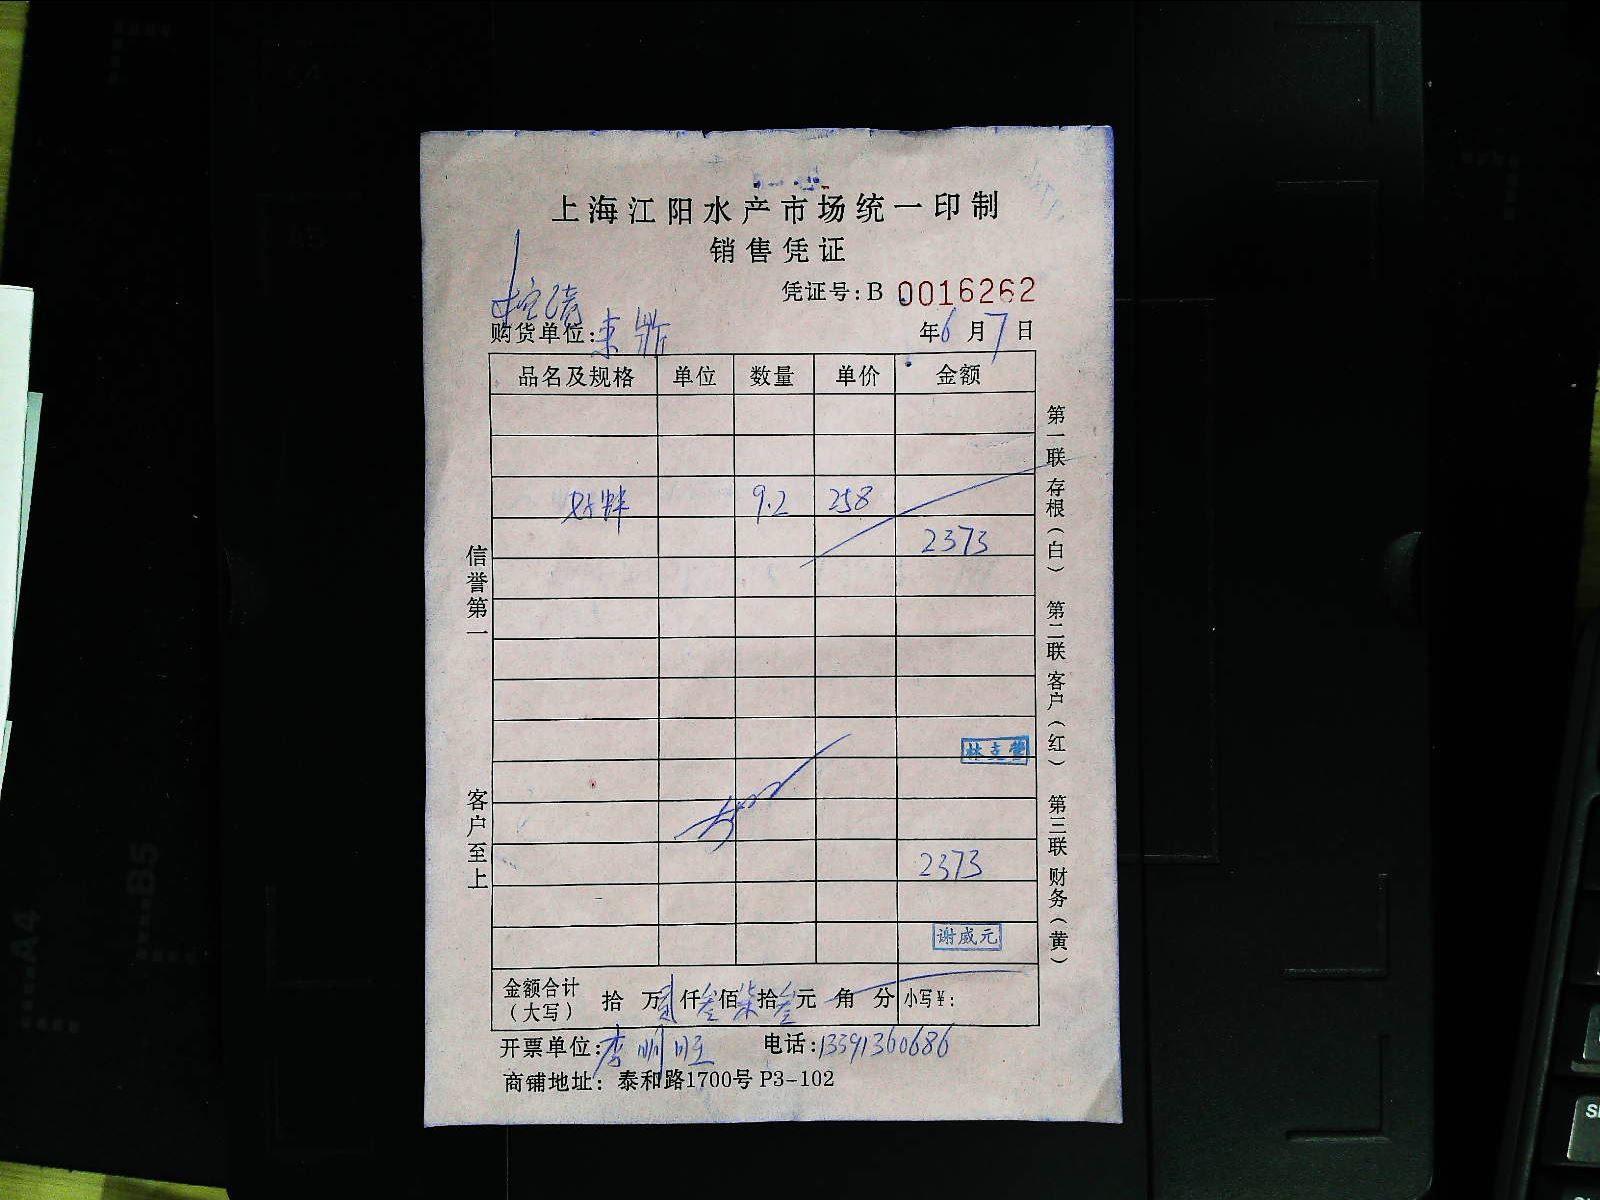 上海江阳水产市场统一印制
销售凭证
凭证号:B 0016262
购货单位:东 年6月7日
品名及规格 单位 数量 单价 金额
9.2 258
2373
2373
谢威元
金额合计（大写） 拾 万贰仟叁佰柒拾叁元 角 分 小写¥:
开票单位:李 电话:13391360686
商铺地址: 泰和路1700号 P3-102
信誉第一
客户至上
第一联 存根（白） 第二联 客户（红） 第三联 财务（黄）
A4
B5